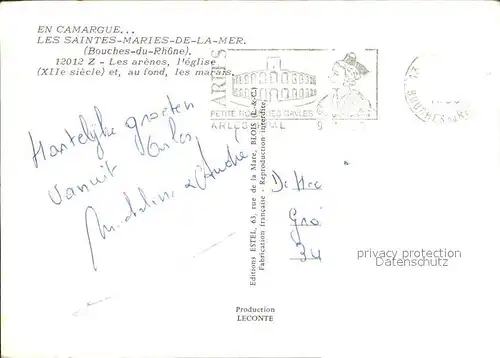 EN CAMARGUE...
LES SAINTES-MARIES-DE-LA-MER.
(Bouches-du-Rhône).
12012 Z - Les arènes, l'église
(XIIe siècle) et, au fond, les marais.
ARLES
PETITE ROME DES GAULES
13
BOUCHES DU RH
Hartelijke groeten
vanuit Arles,
Micheline & André
Editions ESTEL, 63, rue de la Mare, BLOIS (L.-&-C.)
Fabrication française - Reproduction interdite.
De Hee
Gro
34
privacy protection
Datenschutz
Production
LECONTE